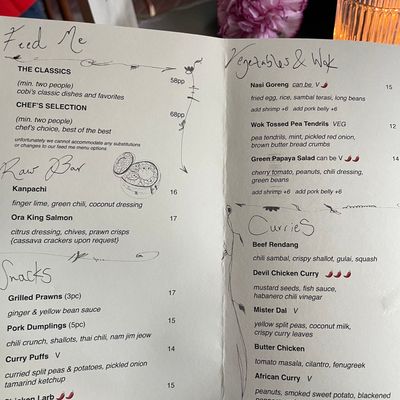 Feed Me
THE CLASSICS 58pp
(min. two people)
cobi's classic dishes and favorites
CHEF'S SELECTION 68pp
(min. two people)
chef's choice, best of the best
unfortunately we cannot accommodate any substitutions
or changes to our feed me menu options
Raw Bar
Kanpachi 16
finger lime, green chili, coconut dressing
Ora King Salmon 17
citrus dressing, chives, prawn crisps
(cassava crackers upon request)
Snacks
Grilled Prawns (3pc) 17
ginger & yellow bean sauce
Pork Dumplings (5pc) 15
chili crunch, shallots, thai chili, nam jim jeow
Curry Puffs V 14
curried split peas & potatoes, pickled onion
tamarind ketchup
Chicken Larb 15
Vegetables & Wok
Nasi Goreng can be V 15
fried egg, rice, sambal terasi, long beans
add shrimp +6 add pork belly +6
Wok Tossed Pea Tendrils VEG 12
pea tendrils, mint, pickled red onion,
brown butter bread crumbs
Green Papaya Salad can be V 14
cherry tomato, peanuts, chili dressing,
green beans
add shrimp +6 add pork belly +6
Curries
Beef Rendang
chili sambal, crispy shallot, gulai, squash
Devil Chicken Curry
mustard seeds, fish sauce,
habanero chili vinegar
Mister Dal V
yellow split peas, coconut milk,
crispy curry leaves
Butter Chicken
tomato masala, cilantro, fenugreek
African Curry V
peanuts, smoked sweet potato, blackened